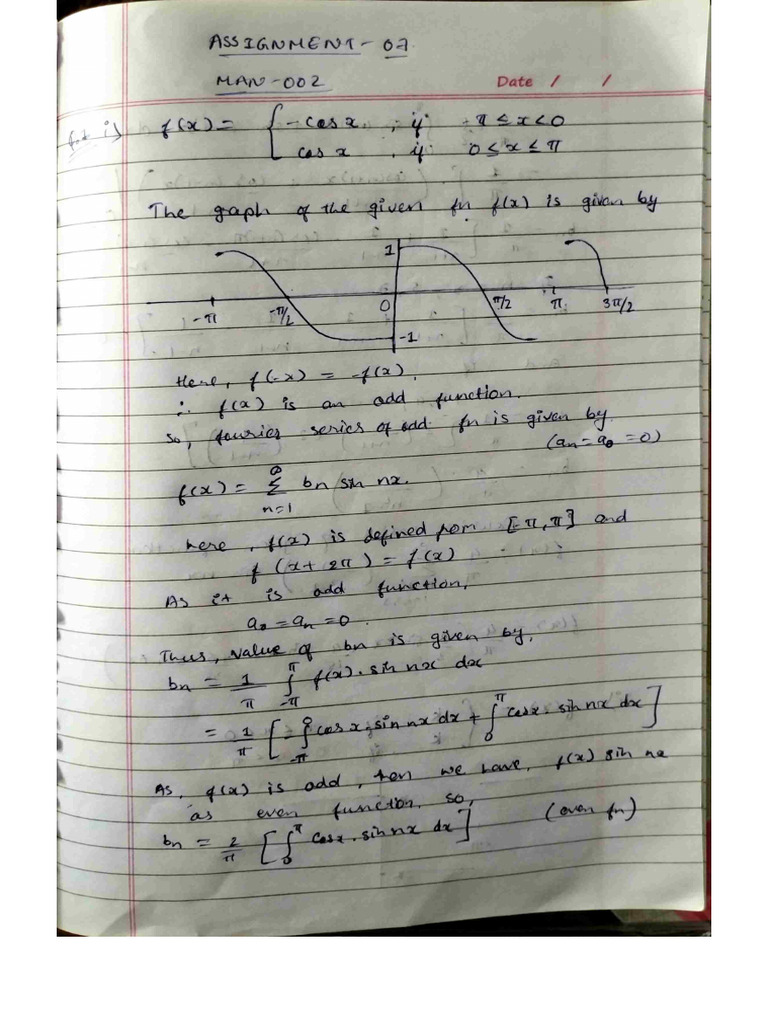 ASSIGNMENT - 07
MAN-002
Date / /
i) f(x) = { -cos x , if -π ≤ x < 0
cos x , if 0 ≤ x ≤ π
The graph of the given fn f(x) is given by
1
-π -π/2 0 π/2 π 3π/2
-1
Here, f(-x) = -f(x).
∴ f(x) is an odd function.
so, fourier series of odd fn is given by
(an = a0 = 0)
f(x) = ∞Σn=1 bn sin nx.
here, f(x) is defined from [-π, π] and
f (x + 2π) = f(x)
As it is odd function,
a0 = an = 0.
Thus, value of bn is given by,
bn = 1/π ∫-π^π f(x). sin nx dx
= 1/π [ -∫-π^0 cos x. sin nx dx + ∫0^π cosx. sin nx dx ]
As, f(x) is odd, then we have, f(x) sin nx
as even function, so,
bn = 2/π [ ∫0^π cosx. sin nx dx ] (even fn)